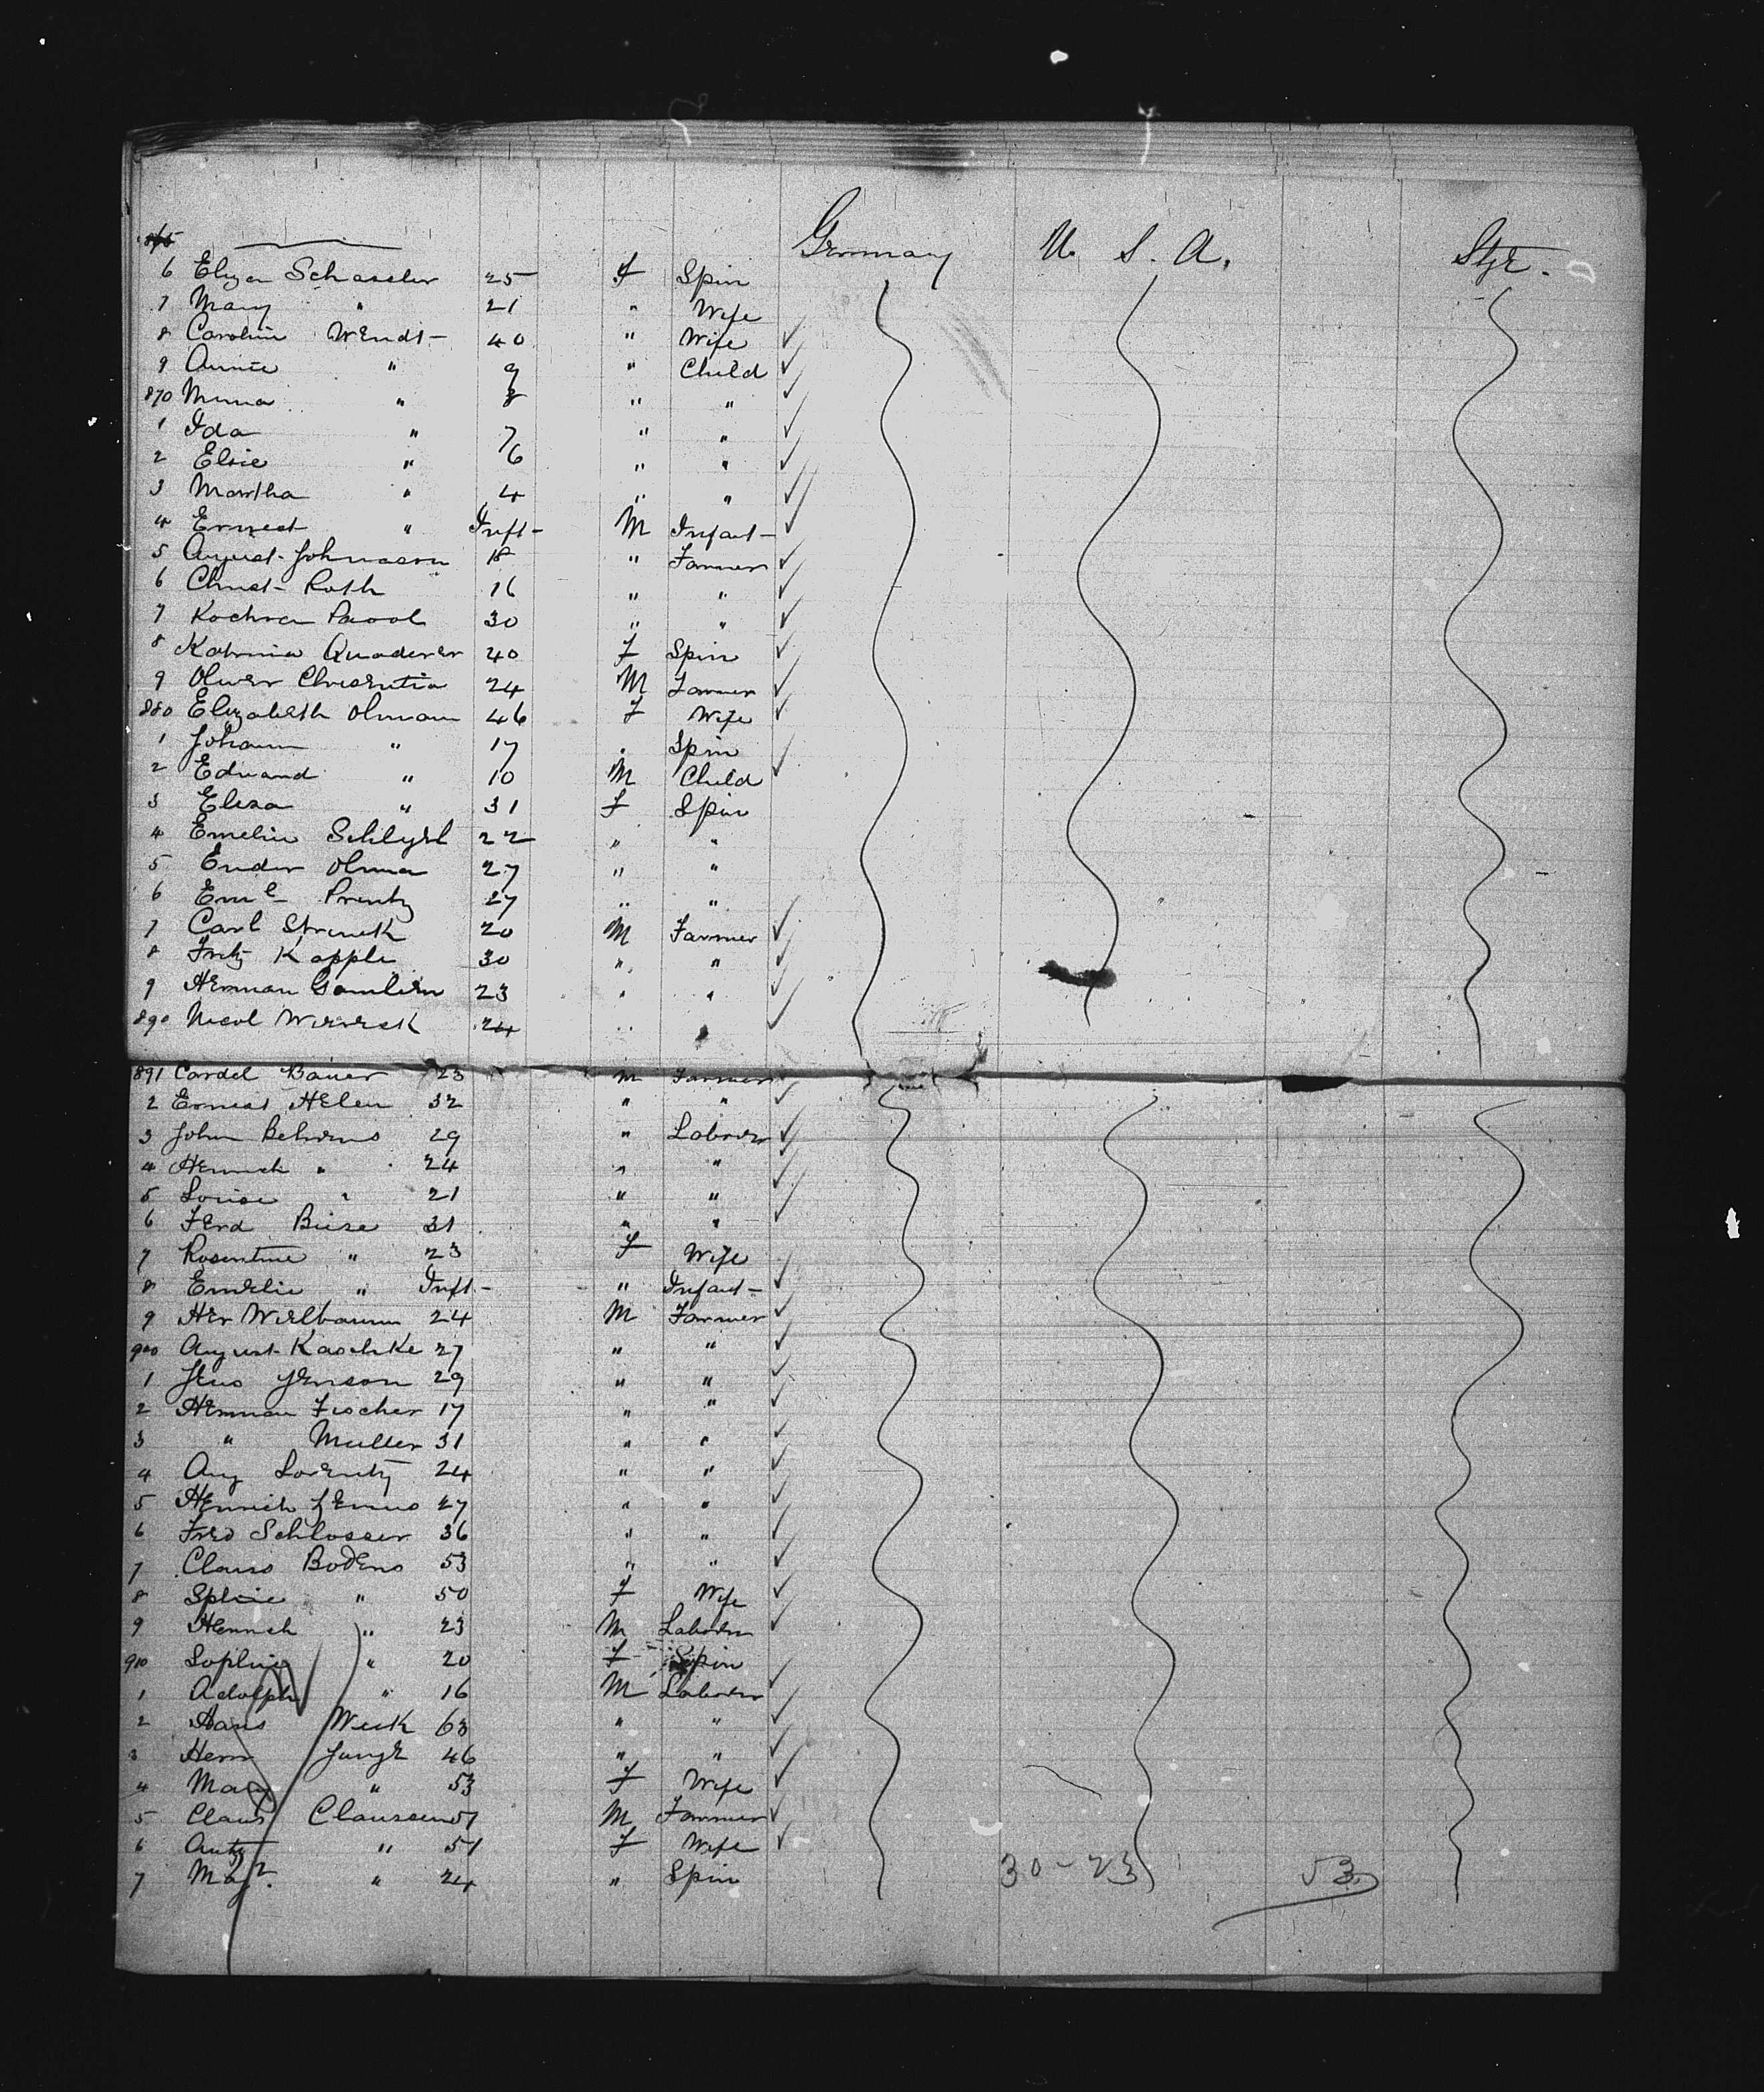 865 Germany U. S. A. Stge.
6 Eliza Schassler 25 F Spin
7 Mary " 21 " Wife
8 Carolin Wendt 40 " Wife
9 Annie " 9 " Child
870 Minna " 8 " "
1 Ida " 7 " "
2 Elsie " 6 " "
3 Martha " 4 " "
4 Ernest " Inft M Infant
5 August Johnason 18 " Farmer
6 Christ Roth 16 " "
7 Kochra 30 " "
8 Katrina Quaderer 40 F Spin
9 Oliver 24 M Farmer
880 Elizabeth Olmann 46 F Wife
1 Johann " 17 " Spin
2 Edward " 10 M Child
3 Eliza " 31 F Spin
4 Emelin 22 " "
5 Ender Olma 27 " "
6 Prentz 27 " "
7 Carl Strunk 20 M Farmer
8 Fritz Kapple 30 " "
9 Herman 23 " "
890 Nicol 24 "
891 Cardel Bauer 23 M Farmer
2 Ernest Helen 32 " "
3 John Behrens 29 " Laborer
4 Heinrich " 24 " "
5 Louise " 21 " "
6 Ferd Biese 31 " "
7 Rosentine " 23 F Wife
8 Emelie " Inft " Infant
9 Her Wielbaum 24 M Farmer
900 August Kaschke 27 " "
1 Jens Jenson 29 " "
2 Herman Fischer 17 " "
3 " Muller 31 " "
4 Aug Lorentz 24 " "
5 Henrich 27 " "
6 Fred Schlosser 36 " "
7 Claus Bodens 53 " "
8 " 50 F Wife
9 Henrich " 23 M Laborer
910 Sophie " 20 F Spin
1 Adolph " 16 M Laborer
2 Hans Wiek 63 " "
3 Herm Junge 46 " "
4 Mary " 53 F Wife
5 Claus Claussen 51 M Farmer
6 " 51 F Wife
7 " 24 " Spin
30-23 53